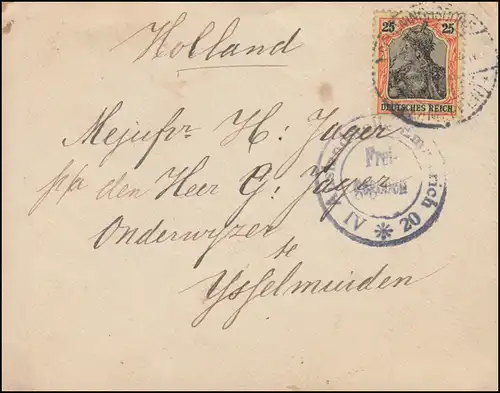 Holland
25 25
DEUTSCHES REICH
Mejufvr H: Jager
p/a den Heer G: Jager
Onderwyzer
te
Ysselmuiden
Frei-
IV * 20